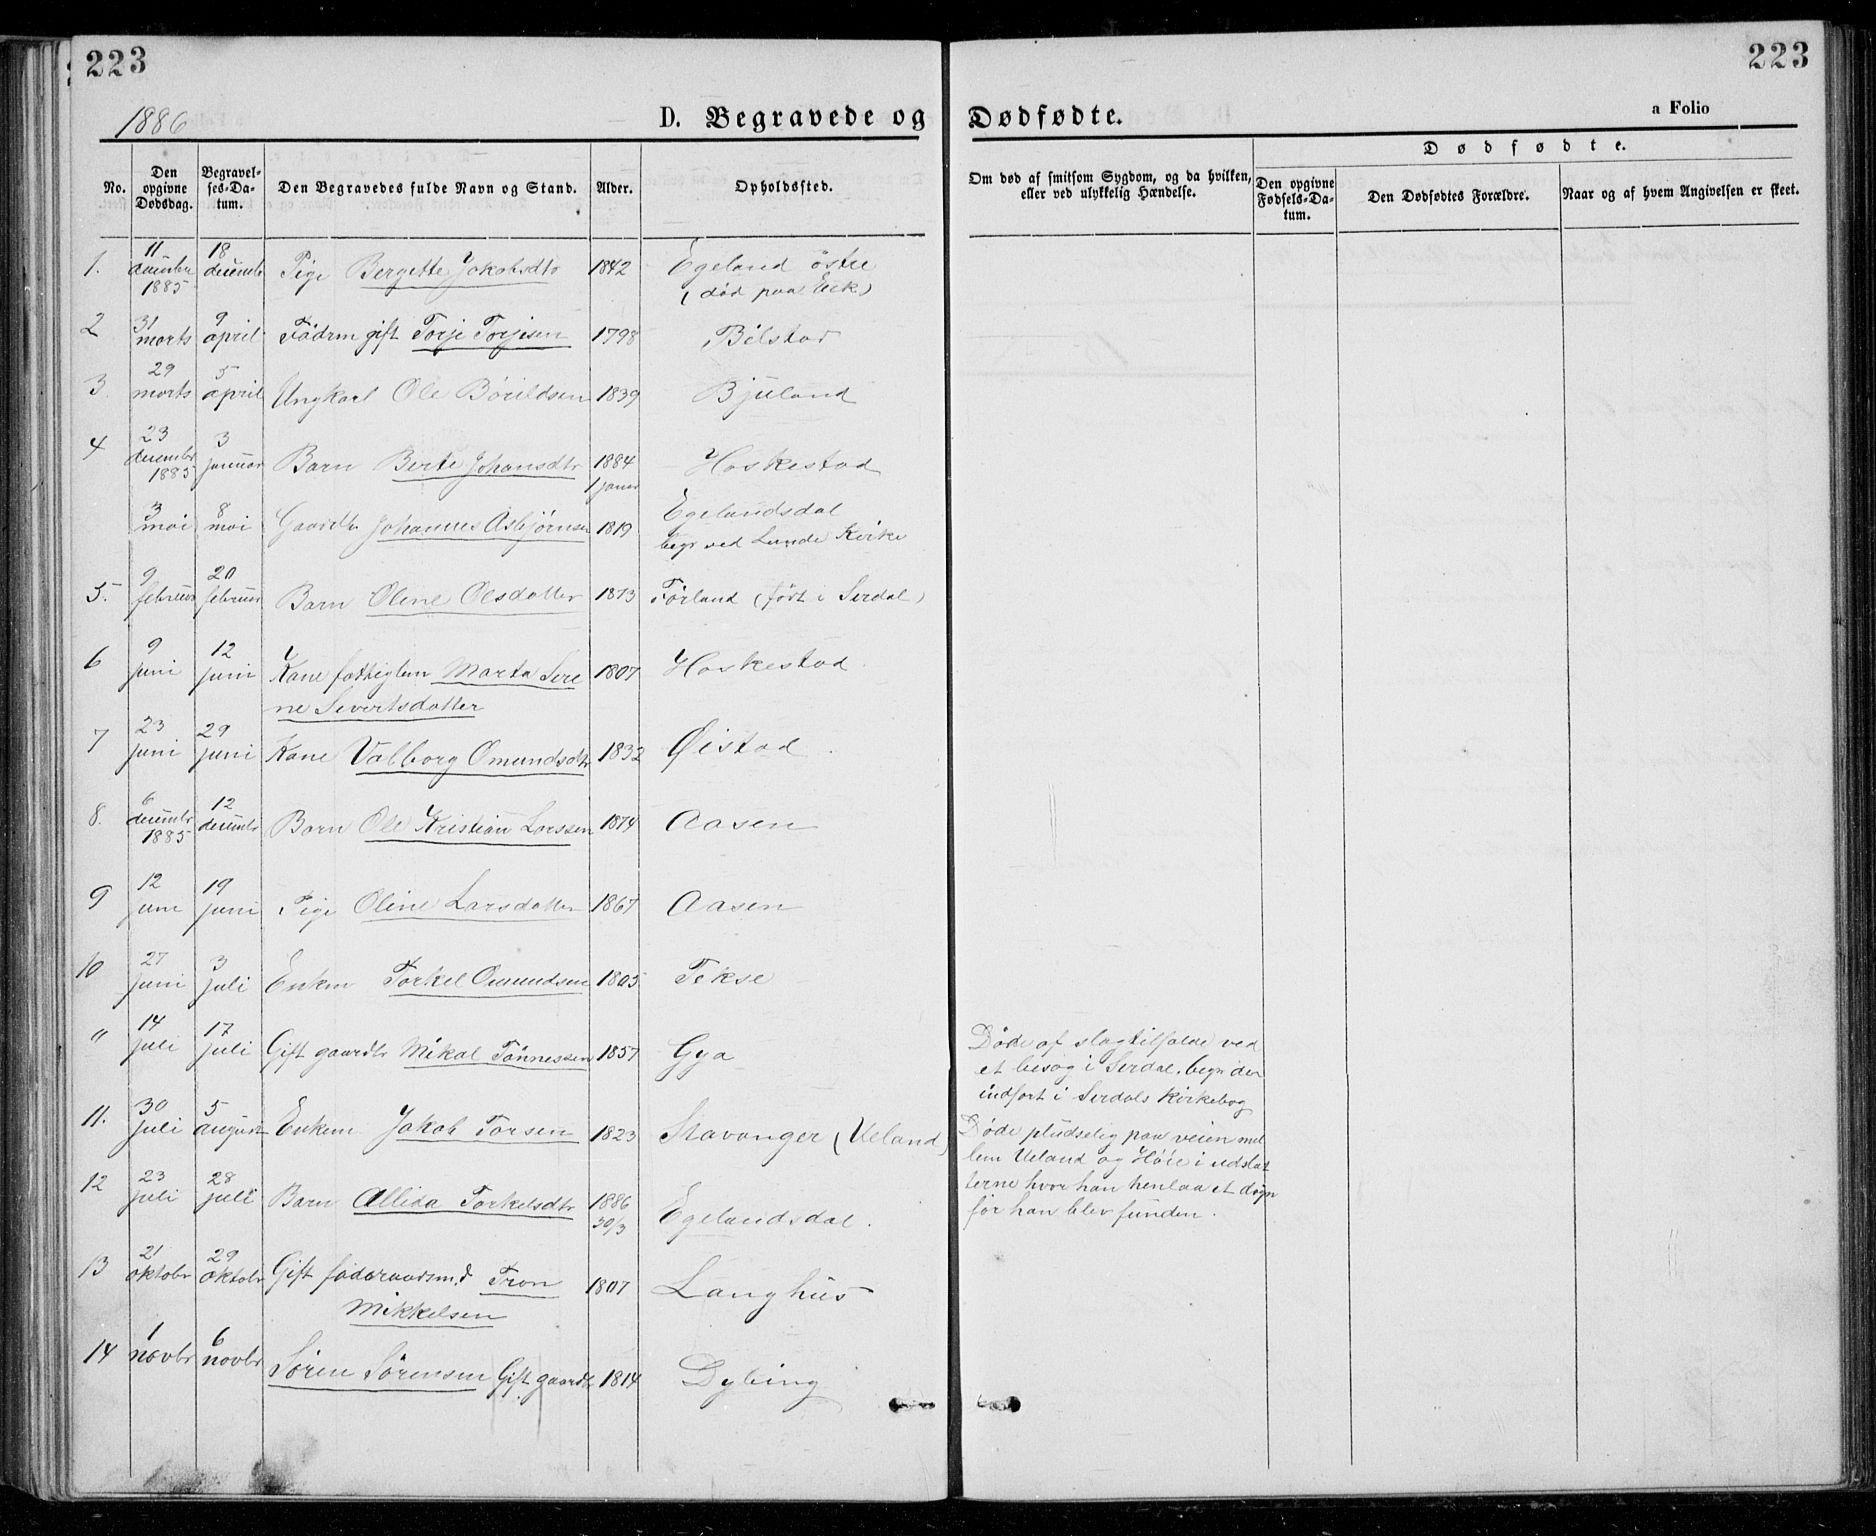 223
223
1886
D. Begravede og Dødfødte.
a Folio
No.
Den opgivne Dødsdag.
Begravelses-Datum.
Den Begravedes fulde Navn og Stand.
Alder.
Opholdssted.
Om død af smitsom Sygdom, og da hvilken, eller ved ulykkelig Hændelse.
Dødfødte.
Den opgivne Fødsels-Datum.
Den Dødfødtes Forældre.
Naar, og af hvem Angivelsen er skeet.
1. 11 decembr 1885 18 decembr Pige Bergette Jakobsdtr 1842 Egeland östre
(død paa Eek)
2 31 marts 9 april Födrm gift Torje Torjesen 1798 Bilstad
3. 29 marts 5 april Ungkarl Ole Böreldsen 1839 Bjuland
4 23 decembr 1885 3 januar Barn Berte Johansdtr 1884 Haskestad
1 januar
3 mai 8 mai Gaardbr Johannes Asbjørnsen 1819 Egelandsdal
begr ved Lunde Kirke
5. 9 februar 20 februar Barn Oline Olsdatter 1873 Førland (ført i Serdal)
6 9 juni 12 juni Kone fattiglem Marta Sere 1807 Haskestad.
ne Sivertsdatter
7 23 juni 29 juni Kone Valborg Omundsdtr 1832 Øistad.
8. 6 decembr 1885 12 decembr Barn Ole Kristian Larssen 1874 Aasen
9 12 juni 19 juni Pige Oline Larsdatter 1867 Aasen
10 27 juni 3 juli Enkem Torkel Omundsen 1805 Tekse
" 14 juli 17 juli Gift gaardbr Mikal Tönnessen 1857 Gya
Døde af slagtilfælde ved
et besøg i Serdal, begr der
indført i Serdals kirkebog
11. 30 juli 5 august Enkem Jakob Torsen 1823 Stavanger (Ueland)
Døde pludselig paa veien mel
lem Ueland og Høie i udslat
terne hvor han henlaa et døgn
før han blev funden.
12 23 juli 28 juli Barn Allida Torkelsdtr 1886 30/3 Egelandsdal.
13 21 oktobr 29 oktobr Gift föderaadsmd Tron 1807 Langhus
Mikkelsen
14 1 novbr 6 novbr Sören Sörensen Gift gaardb 1814 Dybing